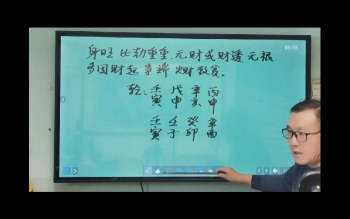 身旺比劫重重,无财或财透无根
多因财起事端,如财散人
例:壬戊辛丙
寅申亥申
壬壬癸辛
寅子卯酉